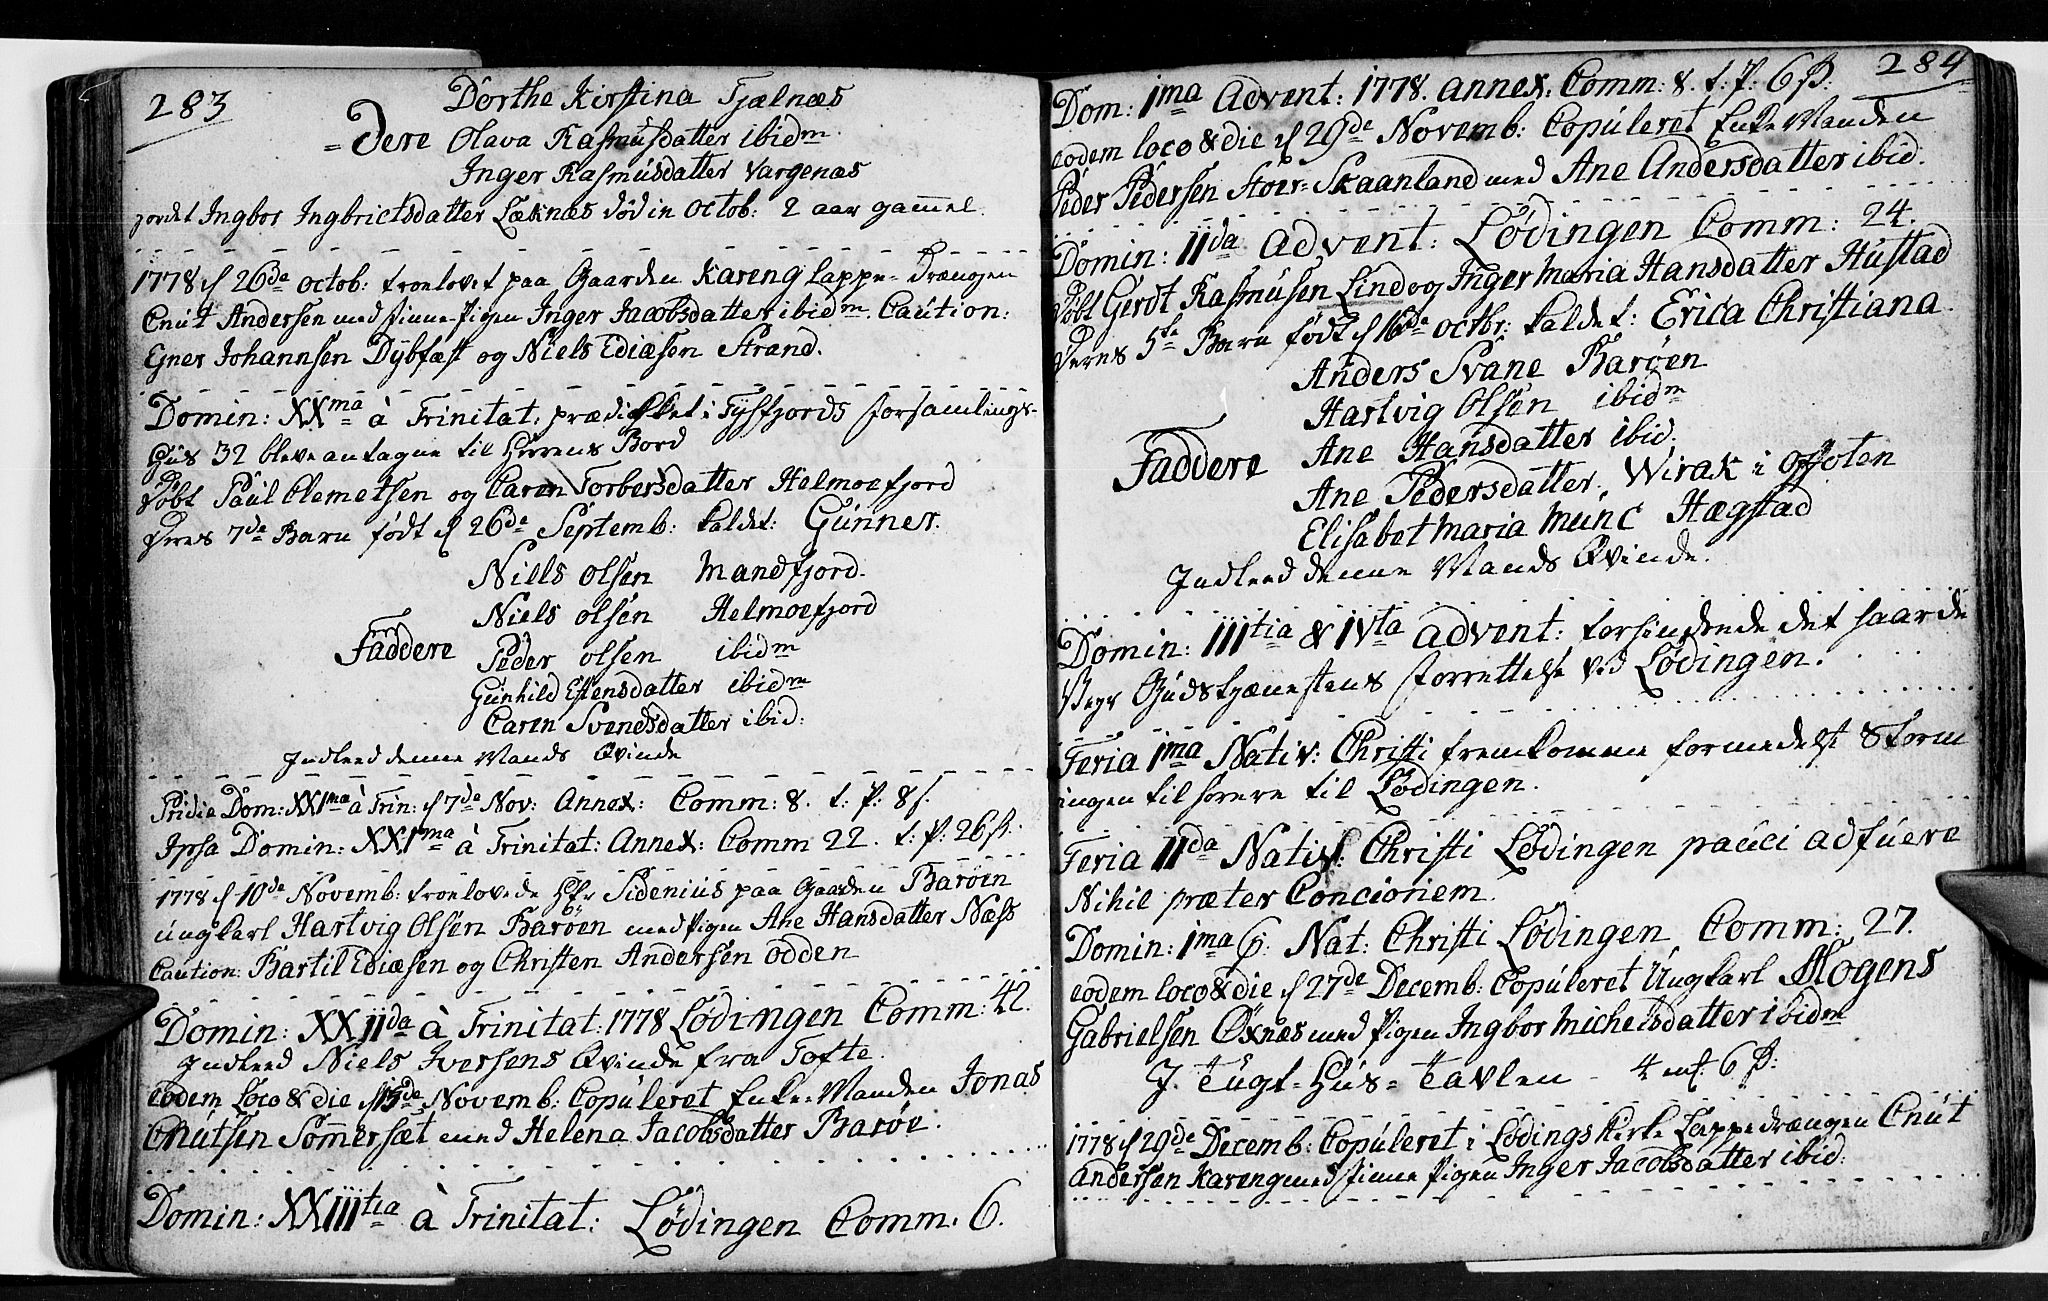 283
Dorthe Kirstina Fjælnæs
= dere Olava Rasmusdatter ibidm.
Inger Rasmusdatter Vargenæs
jordet Ingbor Ingbrictsdatter Læknæs død in Octob: 2 aar gammel.
1778 d 26de Octob: troelovet paa Gaarden Kareng Lappe-Drængen
Cnut Andersen med Finne-Pigen Inger Jacobsdatter ibidm. Caution:
Egner Johannsen Dybfæst og Niels Ediæsen Strand.
Domin: XXma à Trinitat: prædikket i Tysfjords Forsamlings-
Huus 32 bleve antagne til Herrens Bord
døbt Paul Clemetsen og Caren Torbersdatter Helmoefjord
Deres 7de Barn født d 26de Septemb: kaldet: Gunner.
Niels Olsen Mandfjord.
Niels Olsen Helmoefjord
Faddere Peder Olsen ibidm
Gunhild Estensdatter ibidm
Caren Svendsdatter ibid:
Indleed denne Mands Qvinde
Pridie Dom: XXIma à Trin: d 7de Nov: Annex: Comm: 8. t: P: 8 s.
Ipsa Domin: XXIma à Trinitat: Annex: Comm 22. t: P: 26 s.
1778 d 10de Novemb: troelovede Hr Sidenius paa Gaarden Barøen
Ungkarl Hartvig Olsen Barøen med Pigen Ane Hansdatter Næss
Caution: Bartil Ediæsen og Christen Andersen Odden
Domin: XXIIda à Trinitat: 1778 Lødingen Comm: 42.
Indleed Niels Iversens Qvinde fra Tofte.
eodem Loco & die d 15de Novemb: Copuleret Enke-Manden Jonas
Cnutsen Sommersæt med Helena Jacobsdatter Barøe.
Domin: XXIIItia à Trinitat: Lødingen Comm. 6.
284
Dom: 1ma Advent: 1778. Annex. Comm: 8. t: P: 6 s.
eodem loco & die d 29de Novemb: Copuleret Enke-Manden
Peder Pedersen Stoer-Skaanland med Ane Andersdatter ibid.
Domin: IIda Advent: Lødingen Comm: 24.
døbt Gerdt Rasmusen Lind og Inger Maria Hansdatter Hustad
Deres 5te Barn født d 16de Octbr: kaldet: Erica Christiana.
Anders Svane Barøen
Hartvig Olsen ibidm
Faddere Ane Hansdatter ibid.
Ane Pedersdatter. Wirak i Ofoten
Elisabet Maria Munc Hægstad
Indleed denne Mands Qvinde.
Domin: IIItia & IVta Advent: forhindrede det haarde
Veyr Gudstjænestens Forrettelse ved Lødingen.
Feria 1ma Nativ: Christi fremkomme formedelst Storm
ingen tilhørere til Lødingen.
Feria IIda Nativ: Christi Lødingen pauci adfuere
Nihil præter Concionem.
Domin: 1ma p: Nat: Christi Lødingen Comm: 27.
eodem loco & die d 27de Decemb: Copuleret Ungkarl Mogens
Gabrielsen Oxnæs med Pigen Ingbor Michelsdatter ibidm
I. Tugt-Hus-Tavlen - 4 mk 6 s:
1778 d 29de Decemb: Copuleret i Lødings Kirke Lappedrængen Cnut
Andersen Kareng med Finne Pigen Inger Jacobsdatter ibid: